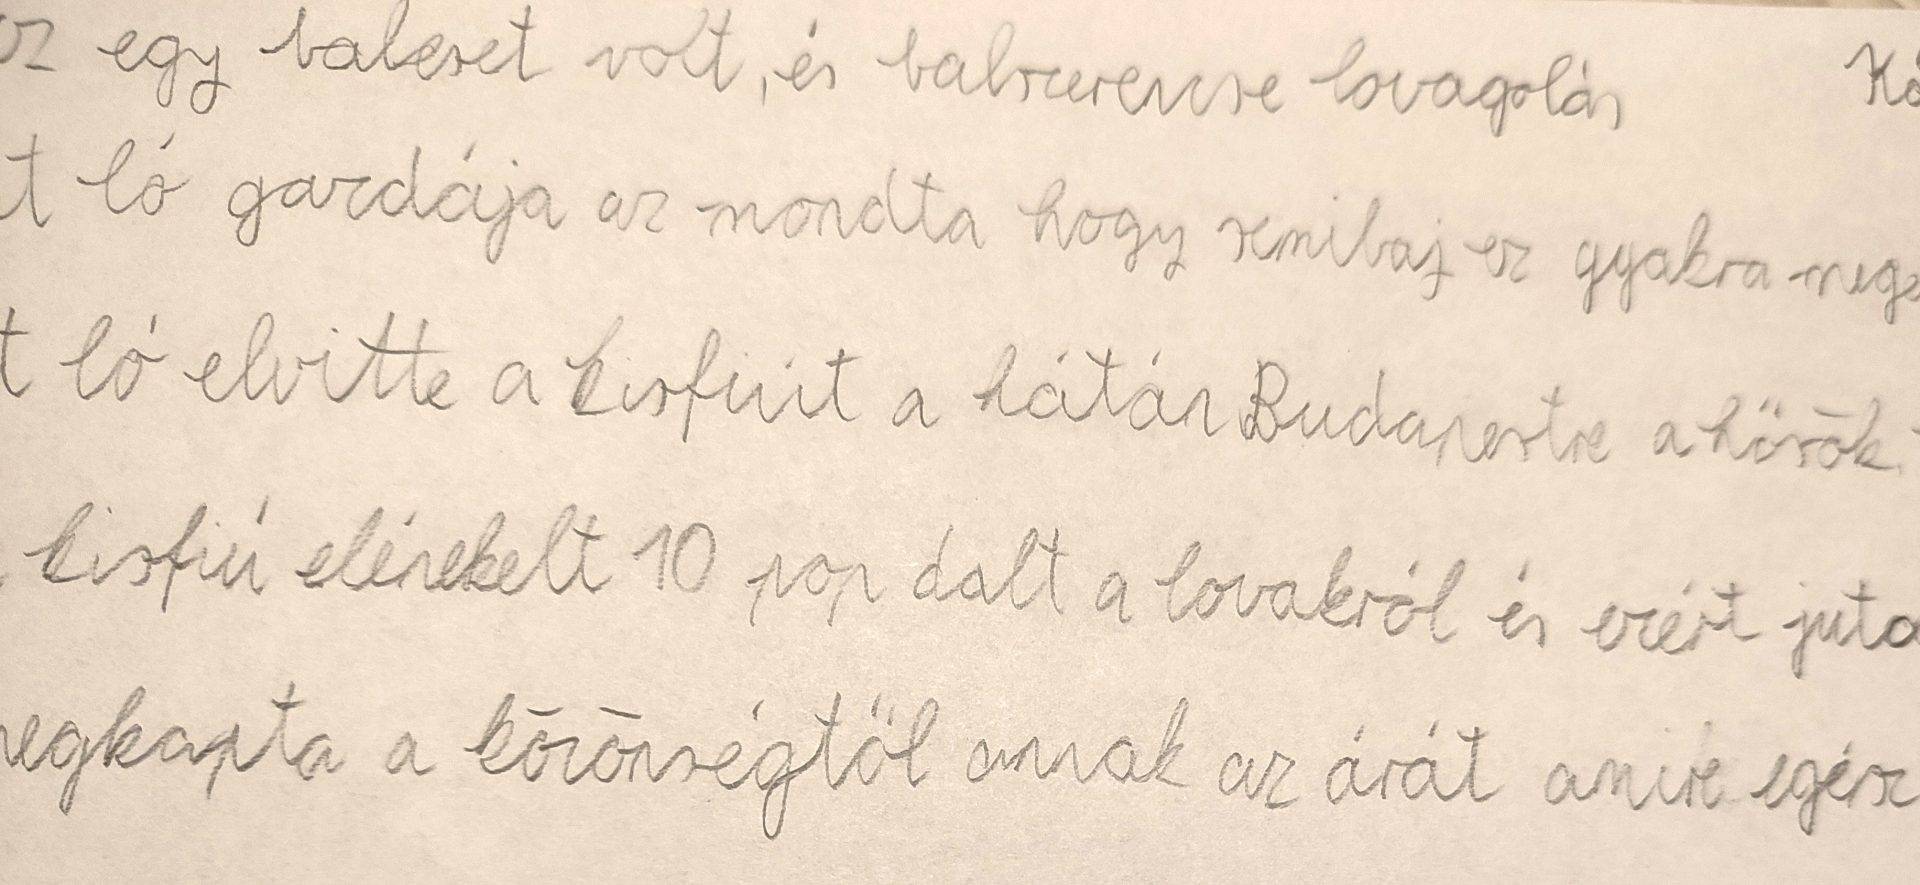 ez egy baleset volt, és balszerencse lovagolás Kö
t ló gazdája az mondta hogy semibaj ez gyakra mege
t ló elvitte a kisfiút a hátán Budapestre a hősök
kisfiú elénekelt 10 pop dalt a lovakról és ezért juta
megkapta a közönségtől annak az árát amire egész